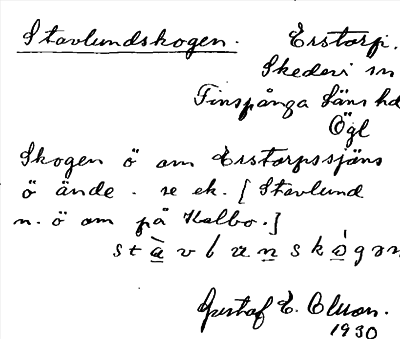 Stavlundskogen. Erstorp.
Skedevi sn
Finspånga läns hd
Ögl
Skogen ö om Erstorpssjöns
ö ände. se ek. [Stavlund
n. ö om på Kalbo.]
stàvlunskògən
Gustaf E. Olson.
1930